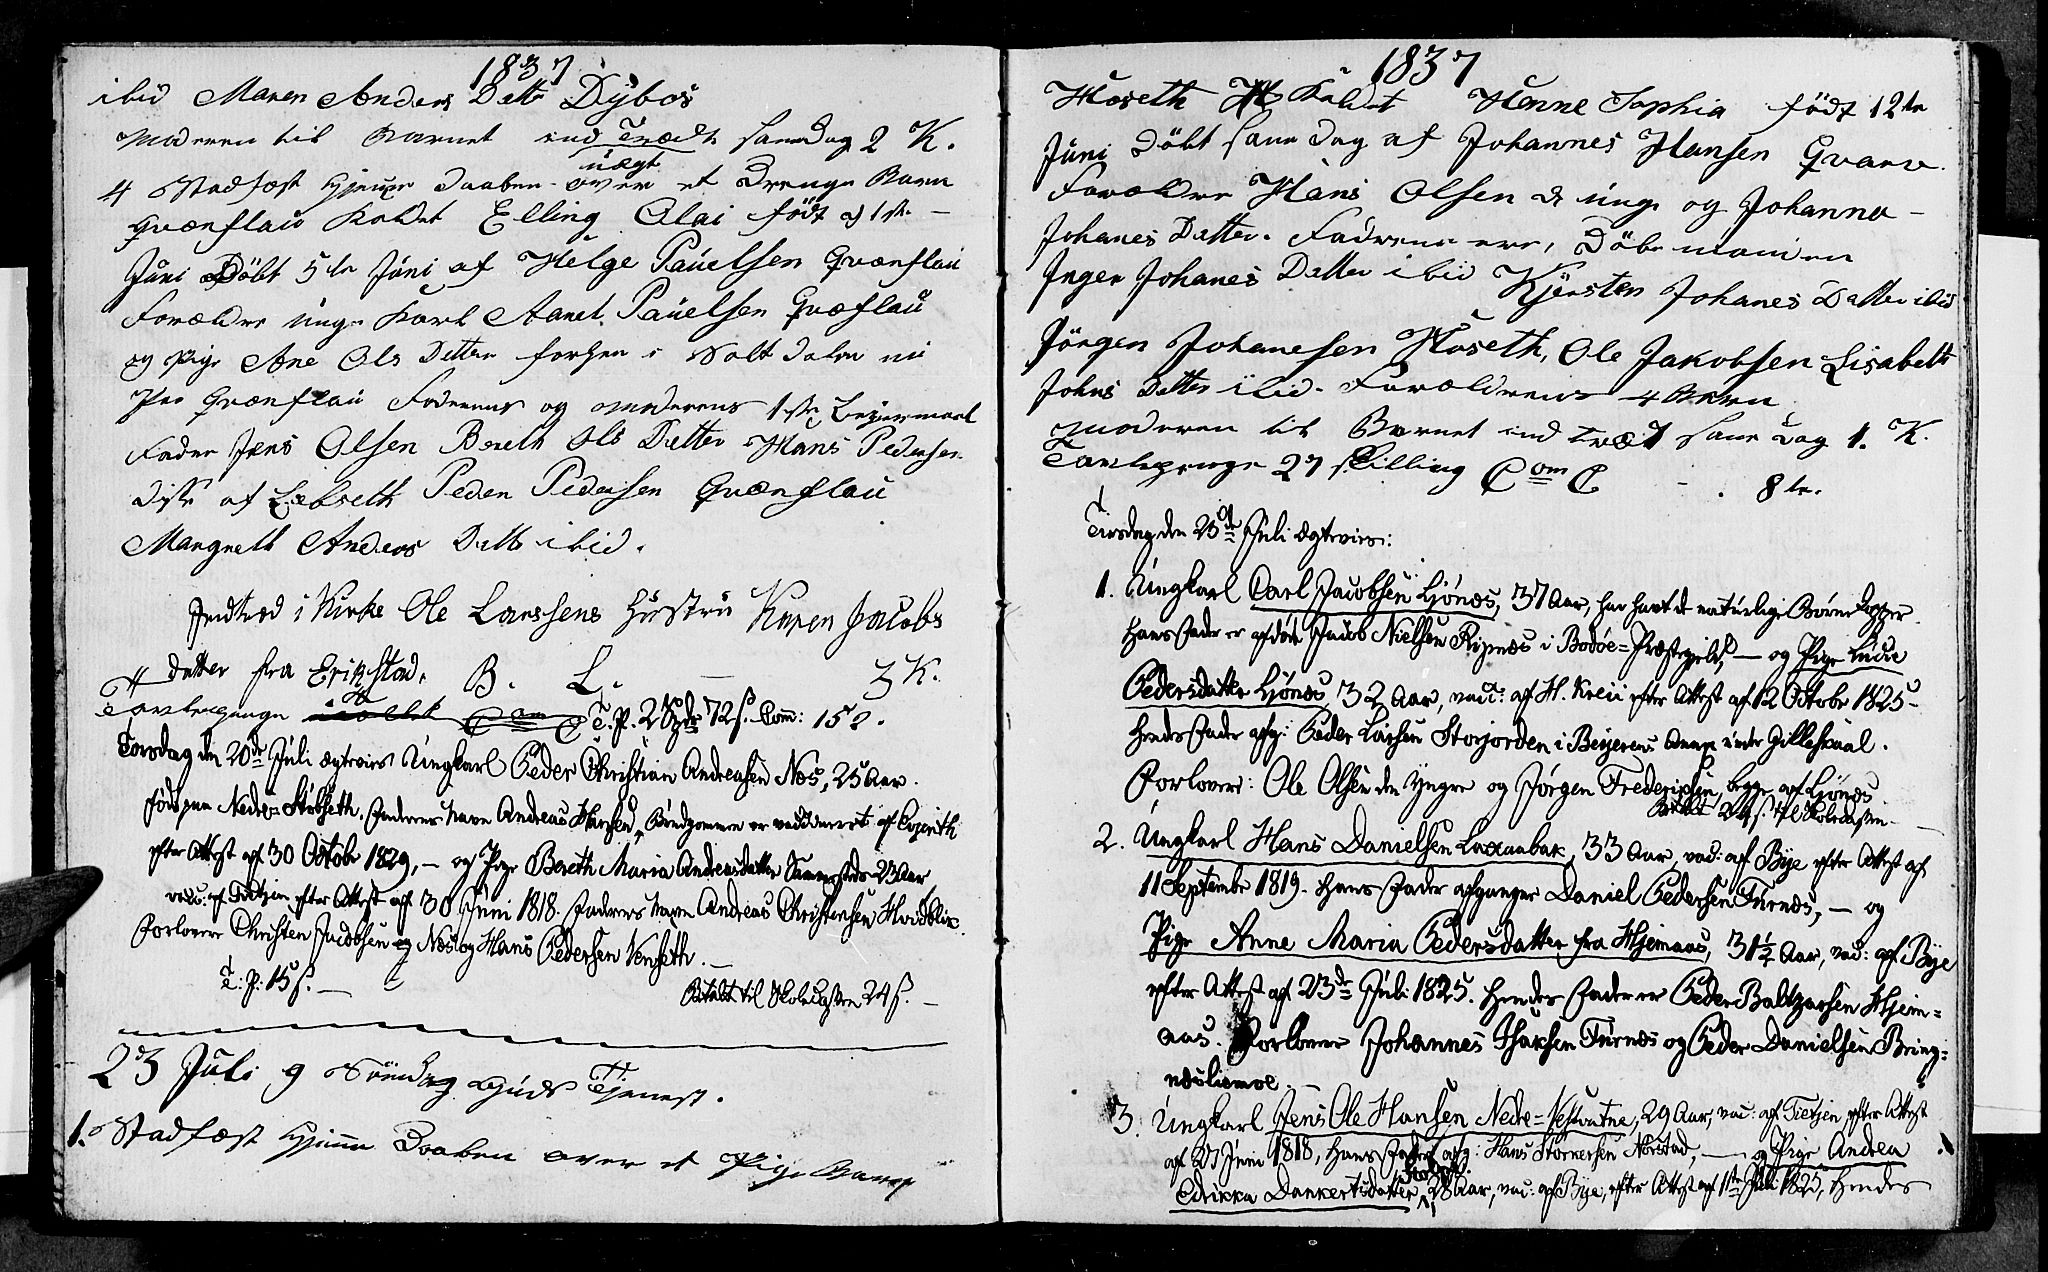 1837
ibid Maren Anders Datter Dybos
Moderen til Barnet ind Trædt samdag 2 K.
uægt
4 Stadfæst Hjeme Daaben over et Drenge Barn
Qvænflau Kaldet Elling Olai født d 1ste
Juni Døbt 5te Juni af Helge Pauelsen Qvænflau
Forældre unge Karl Aanet Pauelsen Qvæflau
og Pige Ane Ols Datter forhen i Salt Dalen nu
Paa Qvænflau Faderens og moderens 1ste Leiermaal
Fader Jens Olsen Bereth Ols Datter Hans Pedersen
disse af Leboseth Peder Pedersen Qvænflau
Margrett Anders Datt ibid.
Indtræd i Kirke Ole Larssens Hustru Karen Jacobs
Datter fra Erikstad. B. L. 3 K.
Tavlepenge T. P. 2 Spdr 72 s. Com: 152.
Torsdag den 20de Juli ægteviet Ungkarl Peder Christian Andreasen Næs, 25 Aar
født paa Nedre Støbseth. Faderens Navn Andreas Hansen, Brudgommen er vaccineret af
efter Attest af 30 Octobr 1829, — og Pige Bereth Maria Andreasdatter 23 Aar
vacc: af Tietzien efter Attest af 30 Juni 1818. Faderens Navn Andreas Christensen Hvidblik.
Forlovere Christen Jacobsen Næs og Hans Pedersen Venseth.
T: P: 15 s. — Betalt til Skolecassen 24 s. —
23 Juli 9 Søndag Guds Tjenest.
1. Stadfæst Hjemme Daaben over et Pige Barn
1837
Hoseth Kaldet Hanne Sophia født 12te
Juni Døbt same dag af Johannes Hansen Qvarv.
Forældre Hans Olsen d unge og Johanna
Johanes Datter. Fadrene ere, Døbe manden
Inger Johanes Datter ibid Kjersten Johanes Datter ibid
Jörgen Johanesen Hoseth, Ole Jakobsen Lisabeth
Johns Datter ibid. Forældrenes 4 Barn
Moderen til Barnet ind Træt same dag 1. K.
Tavlepenge 27 skilling Com 8 te.
Tirsdag den 25de Juli ægteviet:
1. Ungkarl Carl Jacobsen Ljönæs, 37 Aar, har havt de naturlige Børnekopper.
Hans Fader er afdøde Jacob Nielsen Ripnæs i Bodøe-Præstegield, — og Pige Lucie
Pedersdatter Ljönæs, 32 Aar, vacc: af H. Kreii efter Attest af 12 Octobr 1825 —
Hendes Fader afg: Peder Larsen Storjorden i Beyerens Annex under Gilleskaal.
Forlovere: Ole Olsen den yngre og Jørgen Frederiksen, begge af Ljönæs.
Betalt 24 s. til Skolecassen —
2. Ungkarl Hans Danielsen Laxaabak, 33 Aar, vac: af Bye efter Attest af
11 Septembr 1819. Hans Fader afgangne Daniel Pedersen Furnæs, — og
Pige Anne Maria Pedersdatter fra Hjemaas, 31½ Aar, vac: af Bye
efter Attest af 23de Juli 1825. Hendes Fader er Peder Baltzarsen Hjem=
aas. Forlovere Johannes Isaksen Furnæs og Peder Danielsen Bring=
næslismoe. —
3. Ungkarl Jens Ole Hansen Nedre=Vestvatne, 29 Aar, vac: af Tietzen efter Attest
af 21 Juni 1818, Hans Fader afg: Hans Storkersen Norstad, — og Pige Andrea
Edrikka Dankertsdatter, 28 Aar, vac: af Bye, efter Attest af 11te Juli 1825, Hendes